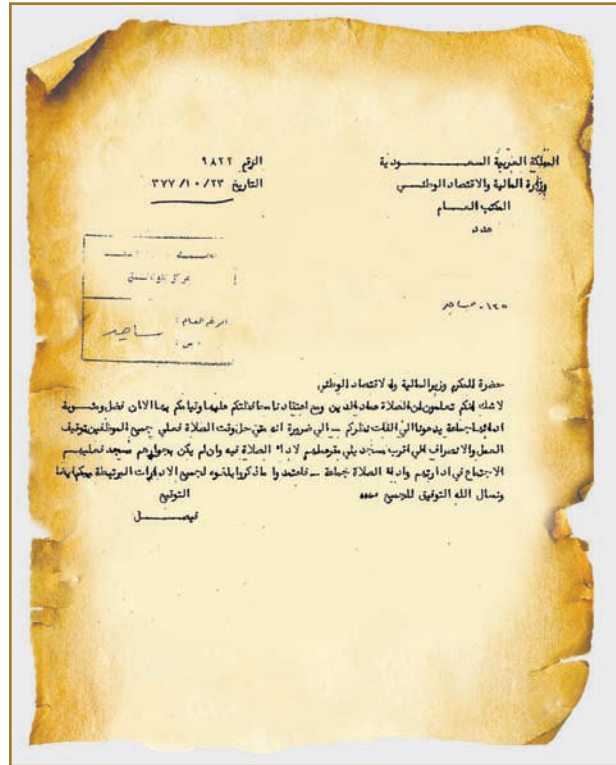 المملكة العربية السعـــــودية
وزارة المالية والاقتصاد الوطنـــي
المكتب العــام
عدد
الرقم ٩٨٢٢
التاريخ ٣٧٧/١٠/٢٣
مركز الوثائـق
الرقم العام :
١٢٥ - مساجد
حضرة المكرم وزير المالية والاقتصاد الوطني
لا شك انكم تعلمون ان الصلاة عماد الدين ومع اعتقادنا محافظتكم عليها وقيامكم بها الا ان فضل ومثـوبة
ادائها جماعة يدعونا الى الفات نظركم ــ الى ضرورة انه متى حل وقت الصلاة فعلى جميع الموظفين توقيف
العمل والانصراف الى اقرب مسجد يلي مقرعملهم لاداء الصلاة فيه وان لم يكن بجوارهم مسجد فعليهم
الاجتماع في ادارتهم واداء الصلاة جماعة ــ فاعتمدوا ماذكر وابلغوه لجميع الادارات المرتبطة بكم
ونسال الله التوفيق للجميع ،،،،
التوقيع
فيصـــل